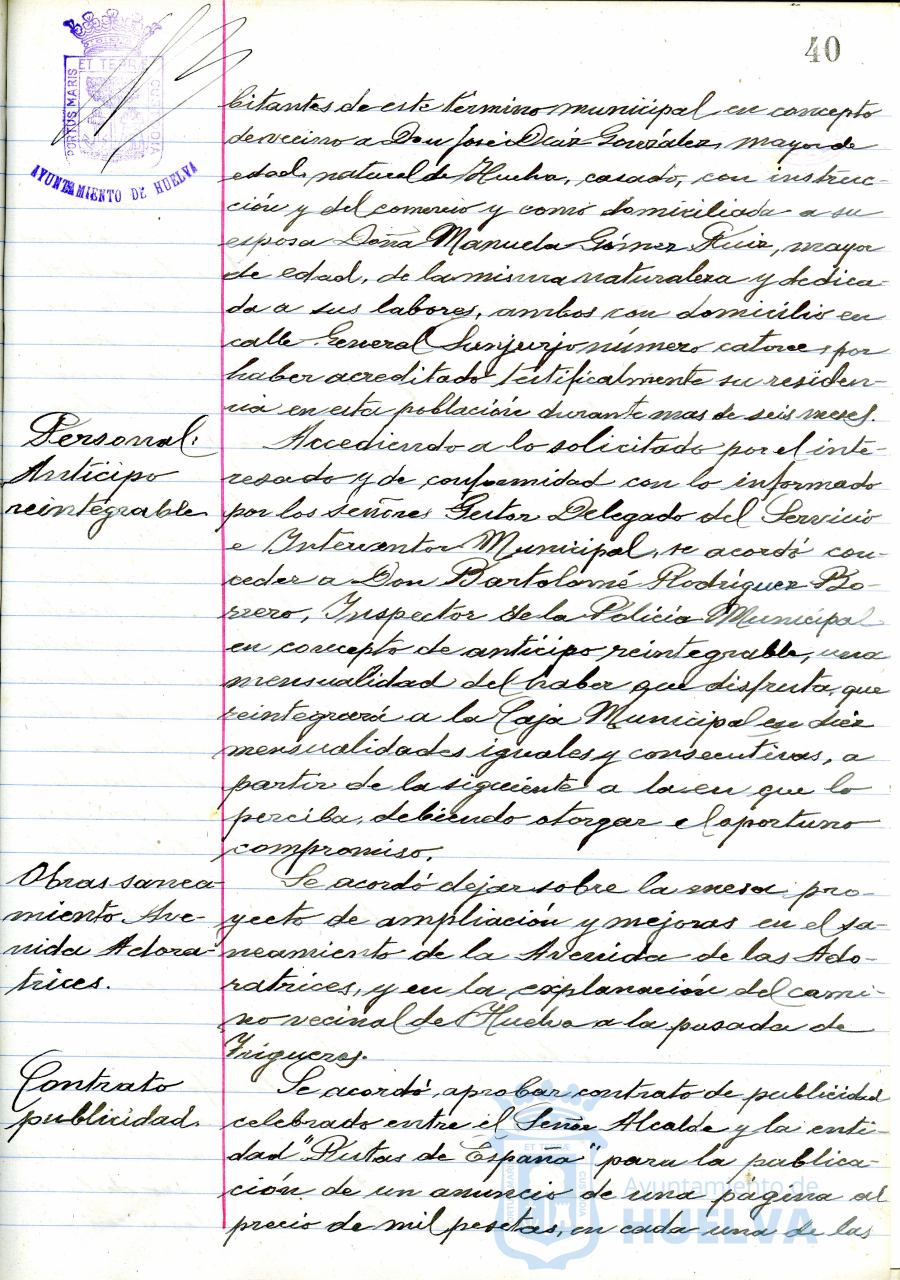 40
ET TERRÆ
PORTUS MARIS
CUSTODIA
AYUNTAMIENTO DE HUELVA
bitantes de este término municipal en concepto
de vecino a Don José Díaz González, mayor de
edad, natural de Huelva, casado, con instruc-
ción y del comercio y como domiciliada a su
esposa Doña Manuela Gómez Ruiz, mayor
de edad, de la misma naturaleza y dedica-
da a sus labores, ambos con domicilio en
calle General Sanjurjo número catorce, por
haber acreditado testificalmente su residen-
cia en esta población durante mas de seis meses.
Personal.
Anticipo
reintegrable
Accediendo a lo solicitado por el inte-
resado y de conformidad con lo informado
por los señores Gestor Delegado del Servicio
e Interventor Municipal, se acordó con-
ceder a Don Bartolomé Rodríguez Bo-
rrero, Inspector de la Policía Municipal
en concepto de anticipo reintegrable, una
mensualidad del haber que disfruta, que
reintegrará a la Caja Municipal en diez
mensualidades iguales y consecutivas, a
partir de la siguiente a la en que lo
perciba, debiendo otorgar el oportuno
compromiso.
Obras sanea-
miento Ave-
nida Adora-
trices.
Se acordó dejar sobre la mesa pro-
yecto de ampliación y mejoras en el sa-
neamiento de la Avenida de las Ado-
ratrices, y en la explanación del cami-
no vecinal de Huelva a la pasada de
Trigueros.
Contrato
publicidad.
Se acordó, aprobar contrato de publicidad
celebrado entre el Señor Alcalde y la enti-
dad "Rutas de España" para la publica-
ción de un anuncio de una página al
precio de mil pesetas, en cada una de las
Ayuntamiento de
HUELVA